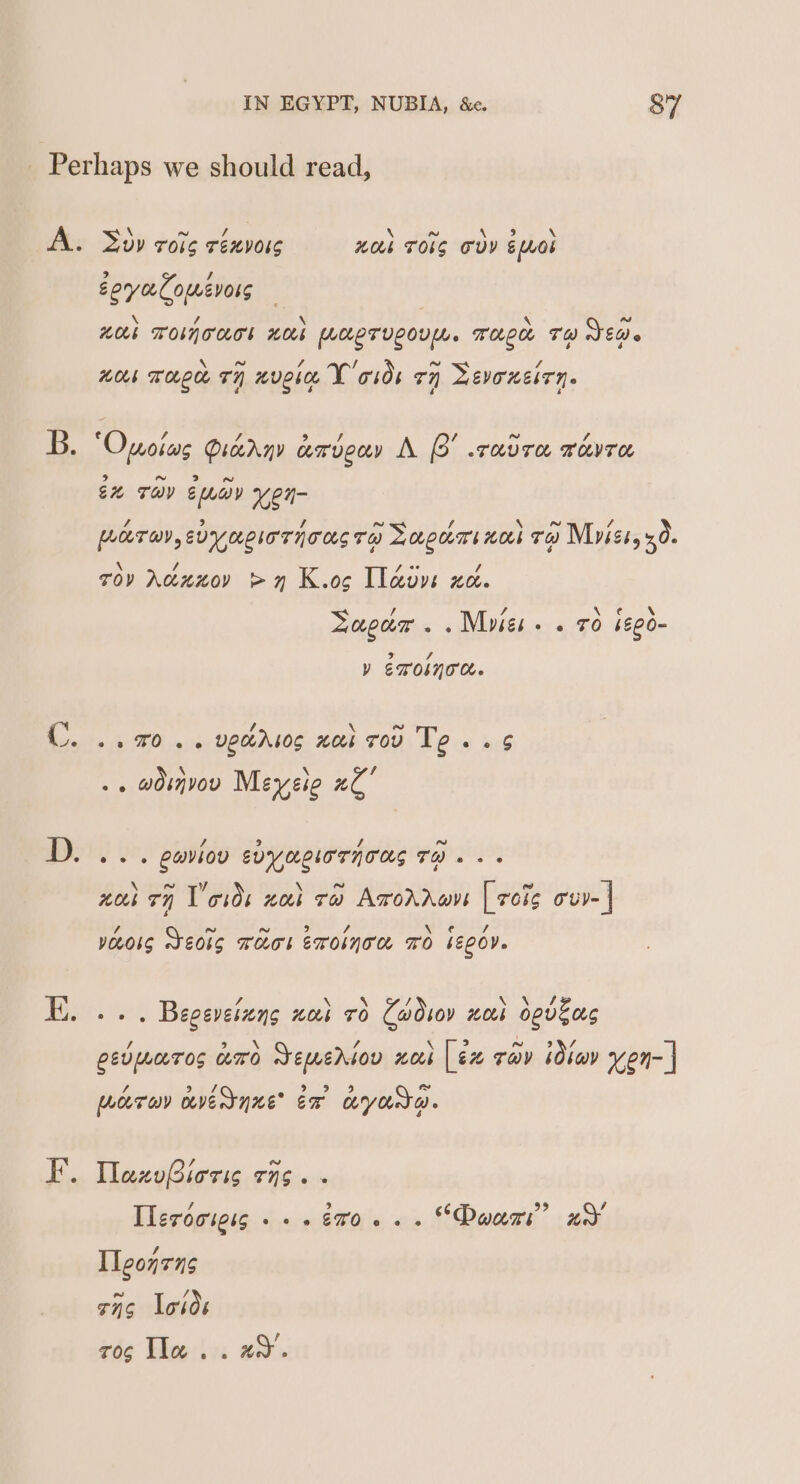 IN EGYPT, NUBIA, &c. 87
Perhaps we should read,
A. Σὺν τοῖς τέκνοις καὶ τοῖς σὺν ἐμοὶ
ἐργαζομένοις
καὶ ποιήσασι καὶ μαρτυρουμ. παρὰ τῳ θεῷ.
και παρὰ τῇ κυρίᾳ Ὑσιδι τῇ Σενσκείτῃ.
B. Ὁμοίως φιάλην ἀπύραν Λ β′ .ταῦτα πάντα
ἐκ τῶν ἐμῶν χρη-
μάτων, εὐχαριστήσας τῷ Σαράπι καὶ τῷ Μνίει, κδ.
τὸν λάκκον > η Κ.ος Παϋνι κά.
Σαράπ . . Μνίει . . τὸ ἱερὸ-
ν ἐποίησα.
C. . . πο . . υράλιος καὶ τοῦ Τρ . . ς
. . ωδιήνου Μεχεὶρ κζ′
D. . . . ρωνίου εὐχαριστήσας τῷ . . .
καὶ τῇ Ἴσιδι καὶ τῶ Απολλωνι [τοῖς συν-]
νάοις θεοῖς πᾶσι ἐποίησα πὸ ἱερόν.
E. . . . Βερενείκης καὶ τὸ ζώδιον καὶ ὀρύξας
ρεύματος ἀπὸ θεμελίου καὶ [ἐκ τῶν ἰδίων χρη-]
μάτων ἀνέθηκε· ἐπ᾽ ἀγαθῷ.
F. Πακυβίστις τῆς . .
Πετόσιρις . . . ἐπο . . . “Φωαπι” κθ′
Προήτης
τῆς Ισίδι
τος Πα . . κθ′.